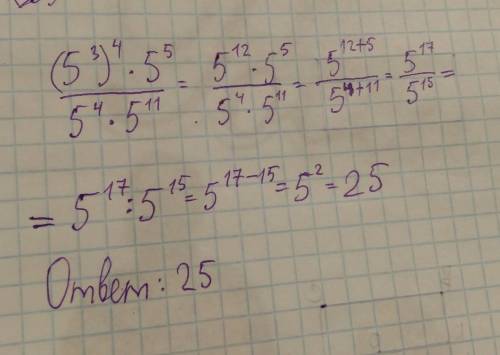 (5³)⁴ · 5⁵ / 5⁴ · 5¹¹ = 5¹² · 5⁵ / 5⁴ · 5¹¹ = 5¹²⁺⁵ / 5⁴⁺¹¹ = 5¹⁷ / 5¹⁵ =
= 5¹⁷ : 5¹⁵ = 5¹⁷⁻¹⁵ = 5² = 25
Ответ: 25